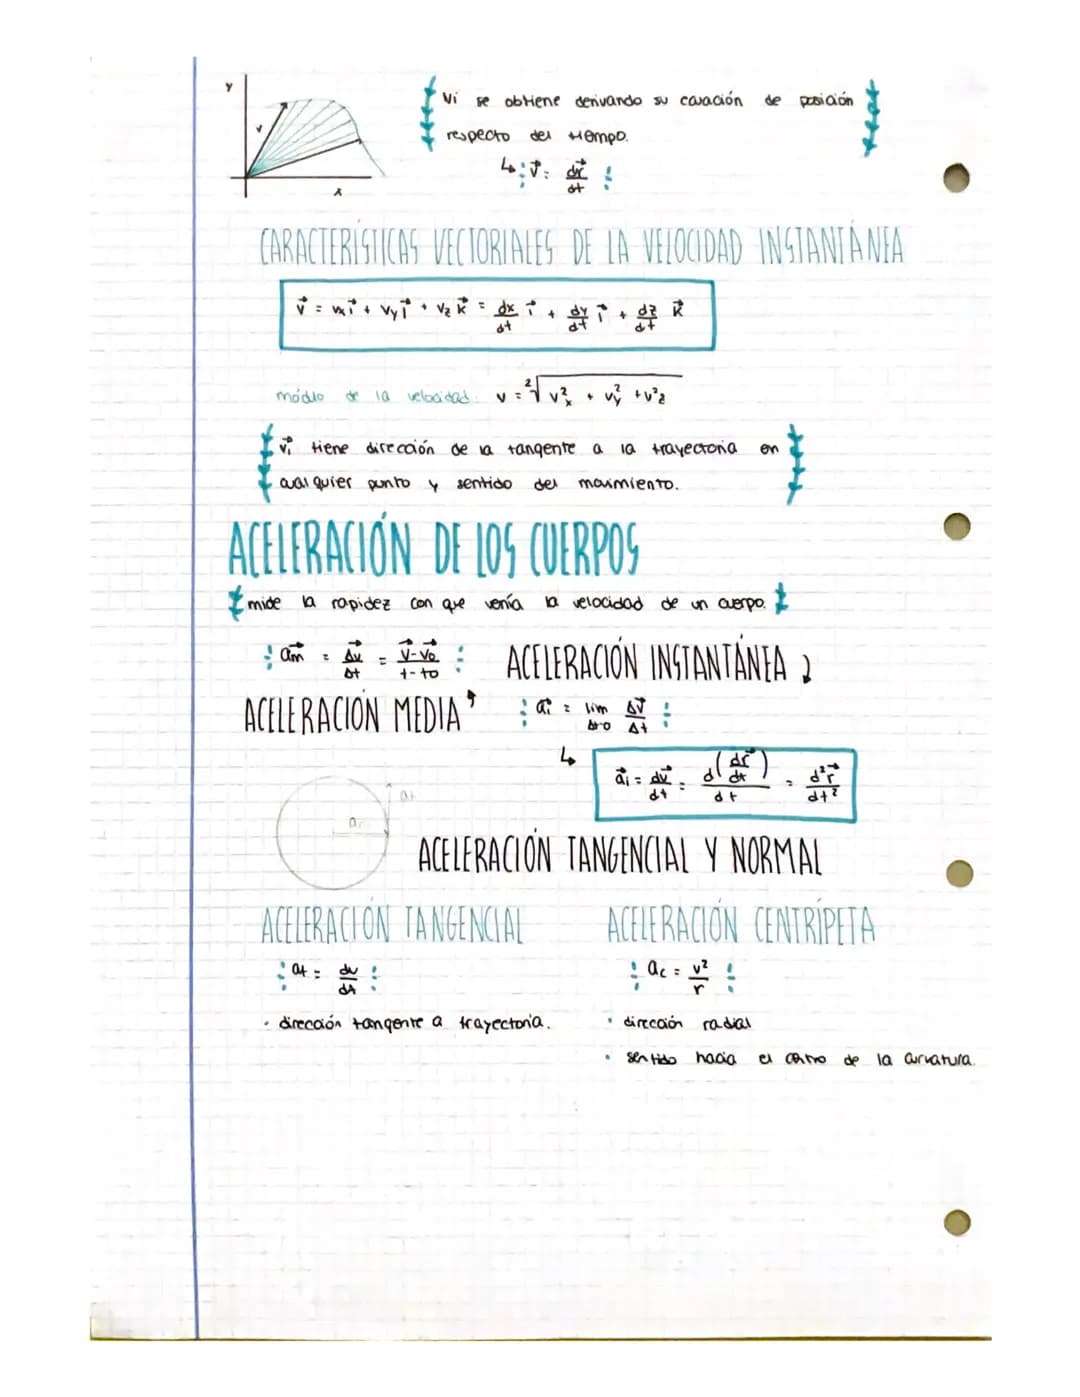 y
Vi se obtiene derivando su cavación de posición
respecto del tiempo.
↳ v⃗ = dr⃗/dt
v
x
CARACTERÍSTICAS VECTORIALES DE LA VELOCIDAD INSTANTÁNEA
v⃗ = vx i⃗ + vy j⃗ + vz k⃗ = dx/dt i⃗ + dy/dt j⃗ + dz/dt k⃗
módulo de la velocidad: v = ²√(v²x + v²y + v²z)
v⃗i tiene dirección de la tangente a la trayectoria en
cualquier punto y sentido del movimiento.
ACELERACIÓN DE LOS CUERPOS
mide la rapidez con que venía la velocidad de un cuerpo.
a⃗m = Δv⃗/Δt = v⃗-v⃗o/t-to
ACELERACIÓN INSTANTÁNEA
ACELERACIÓN MEDIA
a⃗i = lim Δt→0 Δv⃗/Δt
↳ a⃗i = dv⃗/dt = d(dr⃗/dt)/dt = d²r⃗/dt²
at
an
ACELERACIÓN TANGENCIAL Y NORMAL
ACELERACIÓN TANGENCIAL
ACELERACIÓN CENTRÍPETA
at = dv/dt
ac = v²/r
· dirección tangente a trayectoria.
· dirección radial
· sentido hacia el centro de la curvatura.